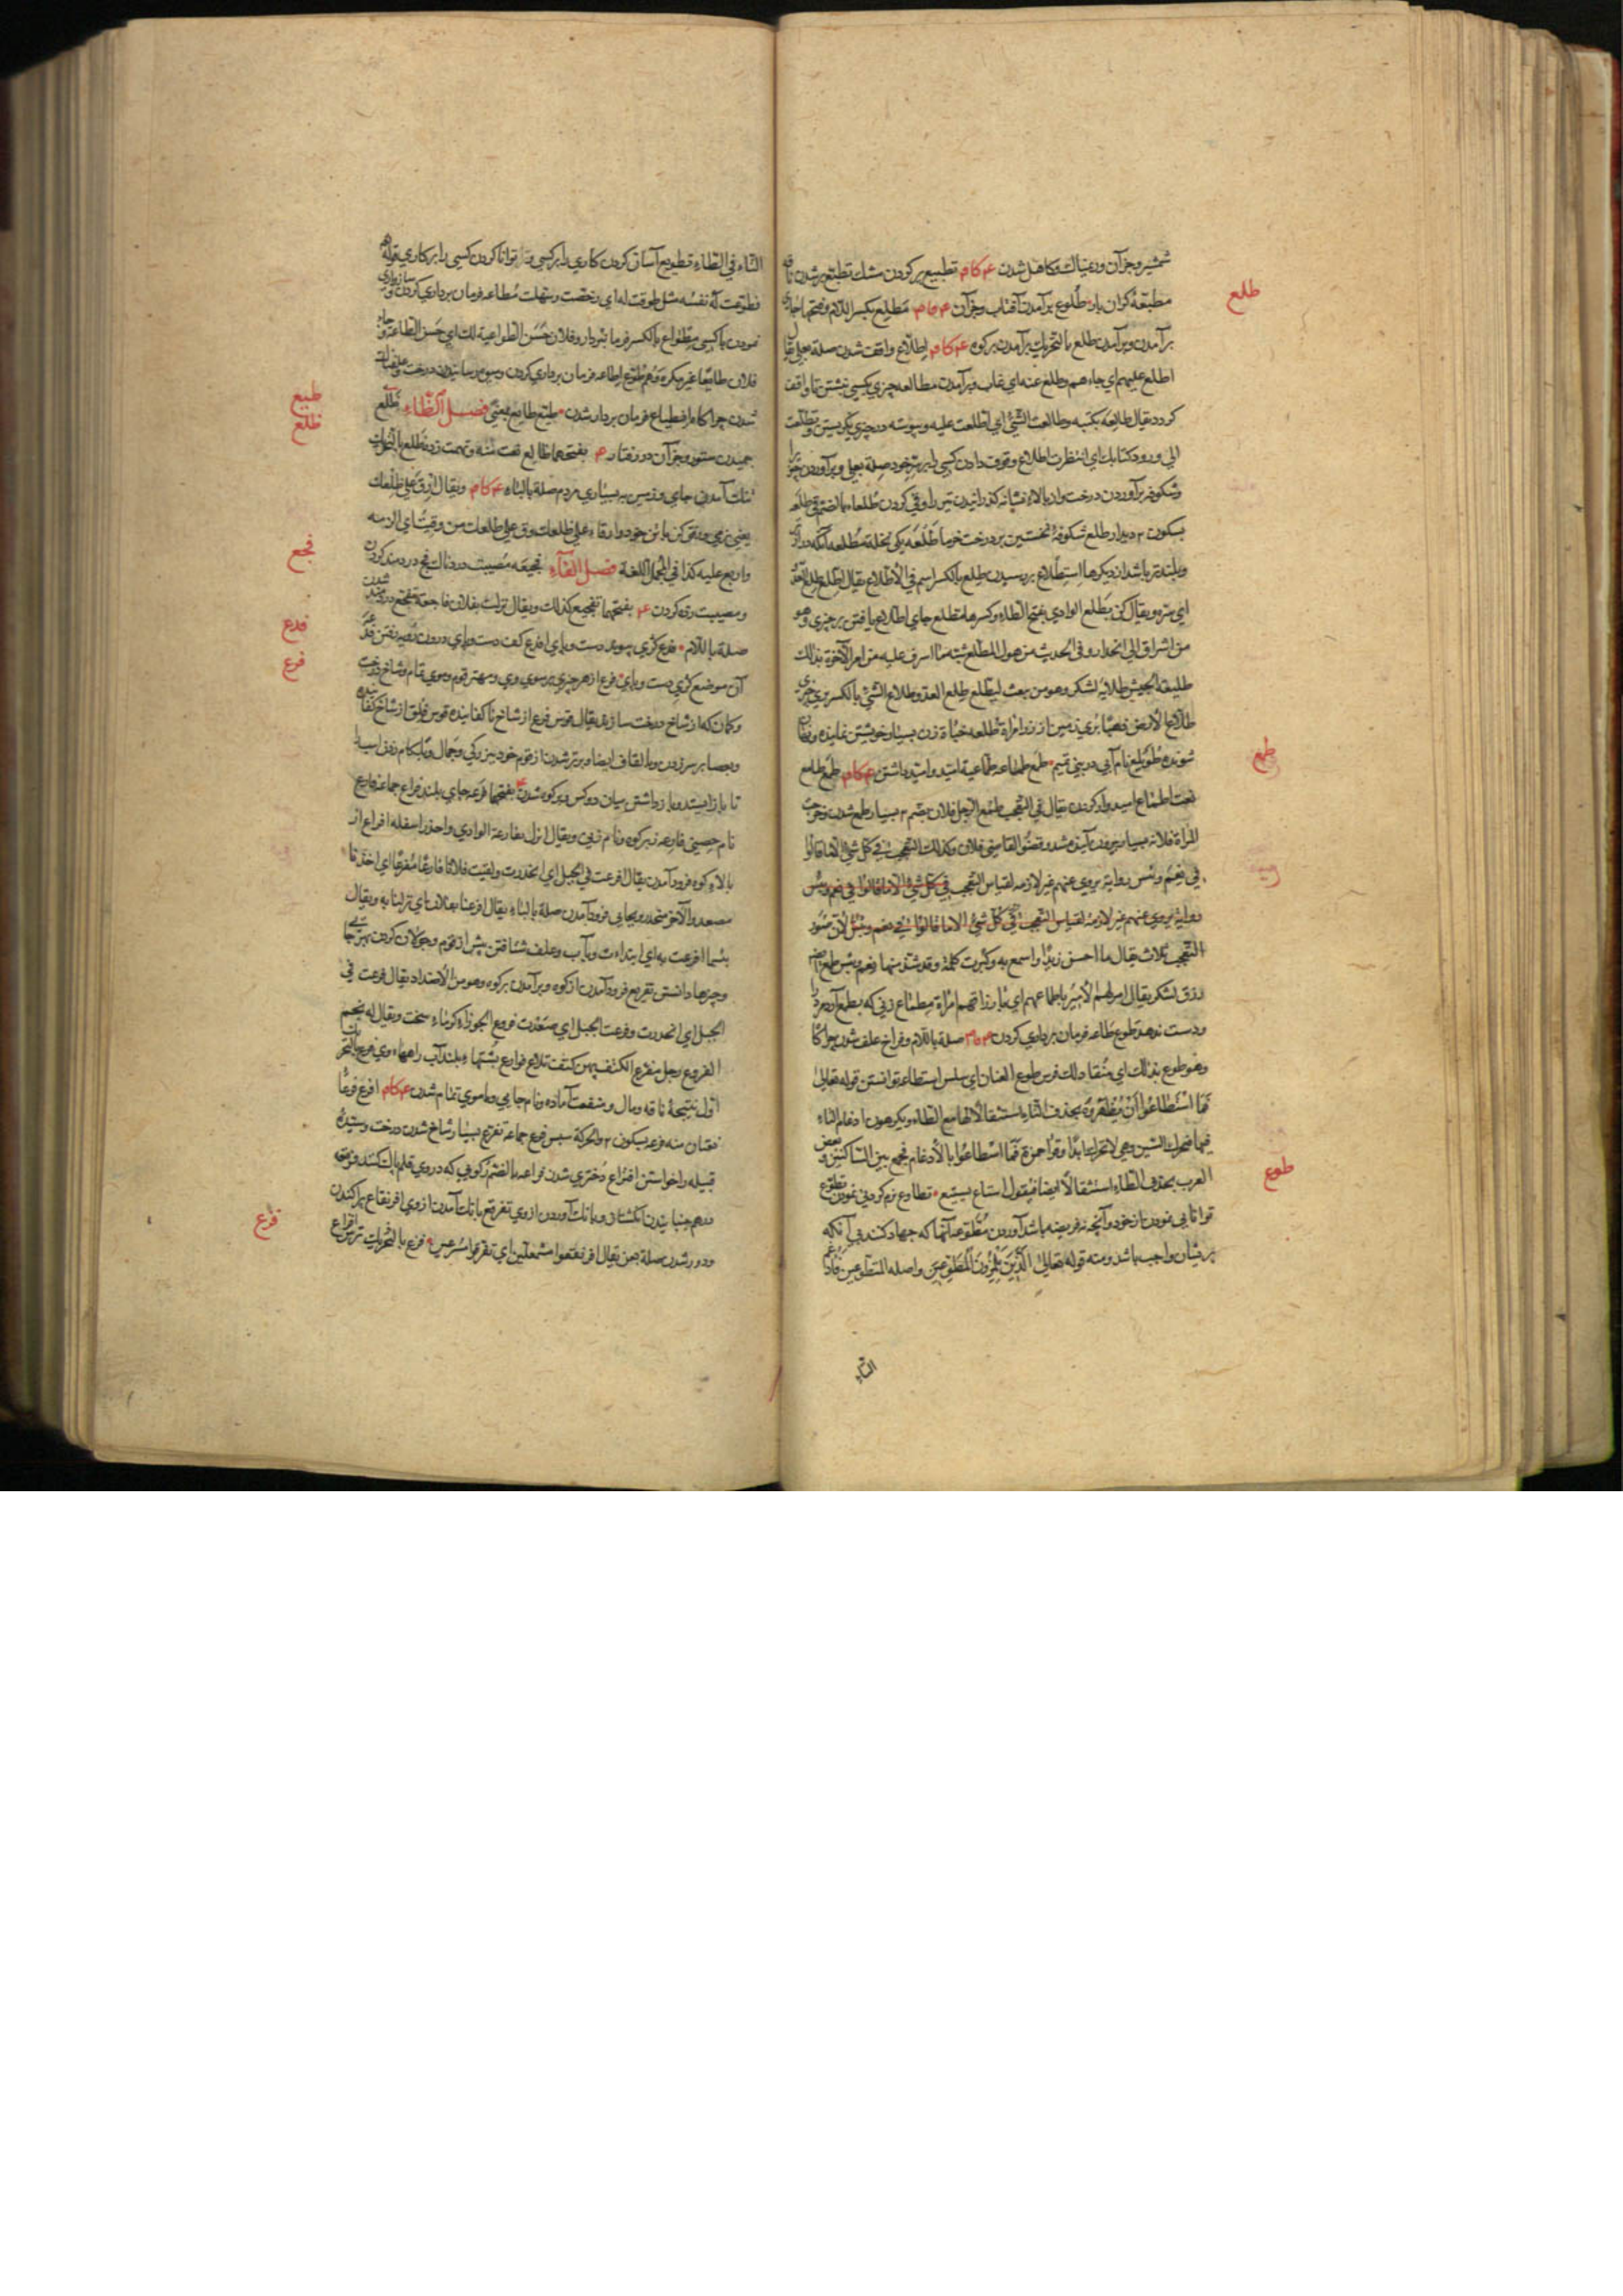 شمشیر و جز آن و دغناك و كاهل شدن ع كام تطبیع پر كردن مشك تطبع پر شدن
مطبعة گران بار طلوع برآمدن آفتاب و جز آن مطلع بكسر اللام و فتحها جای
برآمدن و برآمدن طلع بالتحریك برآمدن بر كوه ع كام اطلاع واقف شدن صلة بعلی یقال
اطلع علیهم ای جاءهم و طلع عنه ای غاب و برآمدن مطالعه چیزی بكسی نبشتن تا واقف
گردد یقال طالعه بكتبه و طالعت الشیء ای اطلعت علیه و پیوسته در چیزی نگریستن و تطلعت
الی ورود كتابك ای انتظرت اطلاع وقوف دادن كسی را بر سر خود صلة بعلی و برآوردن
و شكوفه برآوردن درخت و از بالاء نشانه گذرانیدن تیر را و قی كردن طلعاء بالضم قی
بسكون دیدار طلع شكوفه نخستین بر درخت خرما طلعة یكی نخلة مطلعة آنكه دراز
و بلندتر باشد از دیگرها استطلاع بررسیدن طلع بالكسر اسم فی الاطلاع یقال اطلع طلع العدو
ای سره و یقال كن بطلع الوادی بفتح الطاء و كسرها مطلع جای اطلاع یافتن بر چیزی و هو
من اشراق الی انحدار و فی الحدیث من هول المطلع شبه ما اشرف علیه من امر الآخرة بذلك
طلیعة الجیش طلایه لشكر و هو من بعث لیطلع طلع العدو و طلاع الشیء بالكسر پری چیزی
طلاع الارض ذهبا پری زمین از زر امراة طلعة خباة زن بسیار خویشتن نماینده و پنهان
شونده طویلع نام آبی در بنی تمیم طمع طماعة طماعیة امید و امید داشتن ع كام طمع طامع
نعت اطماع امیدوار كردن یقال فی التعجب طمع الرجل فلان بضم م بسیار طمع شدن و خرجت
المراة فلانة بسیار بیرون آینده شد و قضو القاضی فلان و كذلك التعجب فی كل شیء الا ما قالوا
فی نعم و بئس روایة یروی عنهم غیر لازمة لقیاس التعجب فی كل شیء الا ما قالوا فی نعم و بئس
روایة یروی عنهم غیر لازمة لقیاس التعجب فی كل شیء الا ما قالوا فی نعم و بئس لان صور
التعجب ثلاث یقال ما احسن زیدا و اسمع به و كبرت كلمة و قد شذ منها نعم و بئس طمع
رزق لشكر یقال امر لهم الامیر باطماعهم ای بارزاقهم امراة مطماع زنی كه بطمع آرد مرد را
و دست ندهد طوع طاعة فرمان برداری كردن صلة باللام و فراخ علف شدن چراگاه
و هو طوع یدك ای منقاد لك فرس طوع العنان ای سلس استطاعة توانستن قوله تعالی
فما اسطاعوا ان یظهروه بحذف التاء استثقالا لها مع الطاء و یكرهون ادغام التاء
فیها فتحرك السین و هی لا تحرك ابدا و قرا حمزة فما اسطاعوا بالادغام فجمع بین الساكنین و بعض
العرب بحذف الطاء استثقالا ایضا فیقول استاع یستیع تطاوع نرم گردنی نمودن تطوع
توانایی نمودن از خود و آنچه نه فریضه باشد آوردن مطوعة آنها كه جهاد كنند بی آنكه
بریشان واجب باشد و منه قوله تعالی الذین یلمزون المطوعین و اصله المتطوعین فادغم
التاء
طلع
طمع
طوع
التاء فی الطاء تطویع آسان كردن كاری را بر كسی و توانا كردن كسی را بر كاری قوله
فطوعت له نفسه مثل طوقت له ای رخصت و سهلت مطاعة فرمان برداری كردن و سازواری
نمودن با كسی مطواع بالكسر فرمانبردار و فلان حسن الطواعیة لك ای حسن الطاعة و جاء
فلان طائعا غیر مكره و هم طوع اطاعة فرمان برداری كردن
شدن چراگاه انطیاع فرمان بردار شدن طیع طایع بمعنی فصل الظاء ظلع
جمیدن ستور و جز آن در رفتار بفتحهما ظالع نعت منه و تهمت زده ظلع بالتحریك
تنك آمدن جای و زمین به بسیاری مردم صلة بالباء ع كام و یقال ارق علی ظلعك
یعنی نرمی و رفق كن با تن خود
و اربع علیه كذا فی المجمل اللغة فصل الفاء فجیعة مصیبت دردناك فجع دردمند كردن
و مصیبت زده كردن ع بفتحهما تفجیع كذلك و یقال نزلت بفلان فاجعة تفجع دردمند شدن
صلة باللام فدع كژی پیوند دست و پای افدع كف دست و پای درون
آن موضع كژی دست و پای فرع از هر چیزی بر سوی وی و مهتر قوم و موی تمام و شاخ درخت
و كمان كه از شاخ درخت سازند یقال قوس فرع از شاخ ناكفانیده قوس فلق از شاخ كفانیده
و بعصا بر سر زدن و بالقاف ایضا و برتر شدن از قوم خود ببزرگی و جمال و بلگام زدن اسپ را
تا باز ایستد و باز داشتن میان دو كس و بر كوه شدن بفتحهما فرعة جای بلند فراع جماعة فارع
نام حصنی فارعة زبر كوه و نام زنی و یقال انزل بفارعة الوادی و احذر اسفله افراع از
بالاء كوه فرود آمدن یقال افرعت فی الجبل ای انحدرت و لقیت فلانا فارعا مفرعا ای احدنا
مصعد و الآخر منحدر و بجایی فرود آمدن صلة بالباء یقال افرعنا بفلان ای نزلنا به و یقال
بئسما افرعت به ای ابتدات و بآب و علف شتافتن پیش از قوم و جولان كردن بهر جا
و چیزها دانستن تفریع فرود آمدن از كوه و برآمدن بر كوه و هو من الاضداد یقال فرعت فی
الجبل ای انحدرت و فرعت الجبل ای صعدت فروع الجوزاء گرماء سخت و یقال له نجم
الفروع رجل مفرع الكتف پهن كتف تلاع فوارع پشتهاء بلند آب راهها وی فرع بالتحریك
اول نتیجه ناقه و مال و منفعت آماده و نام جایی و با موی تمام شدن ع كام افرع فرعا
نعتان منه فرعة بسكون و الحركة سپس فرع جماعة تفرع بسیار شاخ شدن درخت
قبیله را خواستن افتراع دختری شدن فراعة
درهم جنبانیدن انگشتان و بانك آوردن از وی تفرقع بانك آمدن از وی افرنقاع پراكندن
و دور شدن صلة بعن یقال افرنقعوا مشمعلین ای تفرقوا مسرعین فزع بالتحریك ترس افزاع
طیع
ظلع
فجع
فدع
فرع
فزع